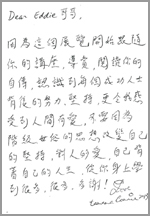 Dear Eddie 哥哥,
因為這個展覽開始認識
你的講座, 書, 閱讀你的
自傳, 認識到每個成功人士
背後的努力, 堅持, 更令我感
受到人間有愛, 不要因為
階級世俗的思想改變自己
的堅持, 別人的愛, 自己有
著自己的人生, 從你身上學
到很多, 很多, 多謝!
Love